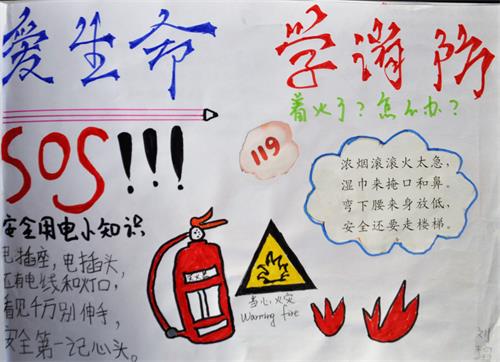 爱生命 学消防
着火了？怎么办？
SOS!!!
119
浓烟滚滚火太急，
湿巾来掩口和鼻。
弯下腰来身放低，
安全还要走楼梯。
安全用电小知识
电插座，电插头，
还有电线和灯口，
看见千万别伸手，
安全第一记心头。
灭火器
当心火灾
Warning fire